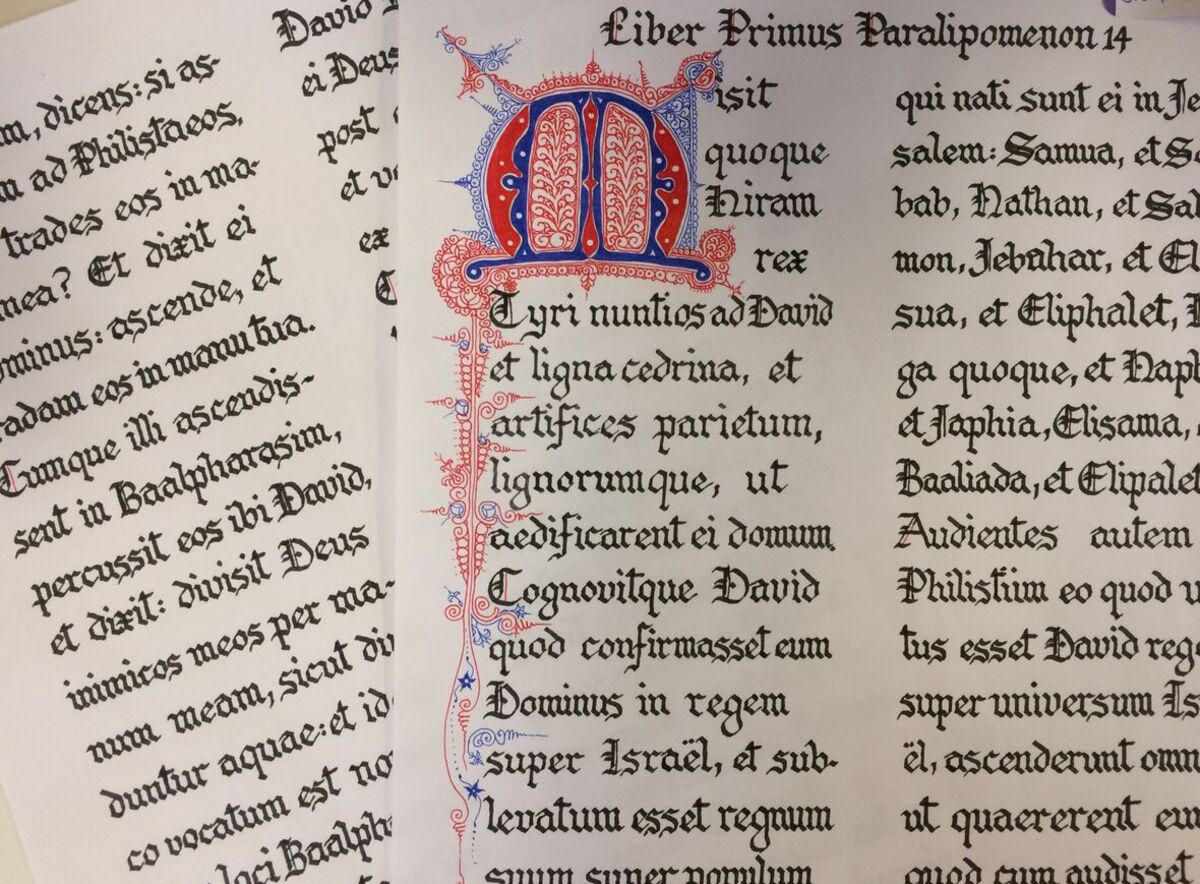 m, dicens: si as-
m ad Philistaeos,
trades eos in ma-
mea? Et dixit ei
ominus: ascende, et
radam eos in manu tua.
Cumque illi ascendis-
sent in Baalpharasim,
percussit eos ibi David,
et dixit: divisit Deus
inimicos meos per ma-
num meam, sicut div
duntur aquae: et id
co vocatum est no
loci Baalpha
David
ei Deus
post
et v
ex
Liber Primus Paralipomenon 14
Misit
quoque
Hiram
rex
Tyri nuntios ad David
et ligna cedrina, et
artifices parietum,
lignorumque, ut
aedificarent ei domum.
Cognovitque David
quod confirmasset eum
Dominus in regem
super Israël, et sub-
levatum esset regnum
suum super populum
qui nati sunt ei in Je
salem: Samua, et So
bab, Nathan, et Sal
mon, Jebahar, et El
sua, et Eliphalet,
ga quoque, et Naph
et Japhia, Elisama,
Baaliada, et Elipalet
Audientes autem
Philistiim eo quod u
tus esset David reg
super universum Is
ël, ascenderunt omn
ut quaererent eu
quod cum audisset